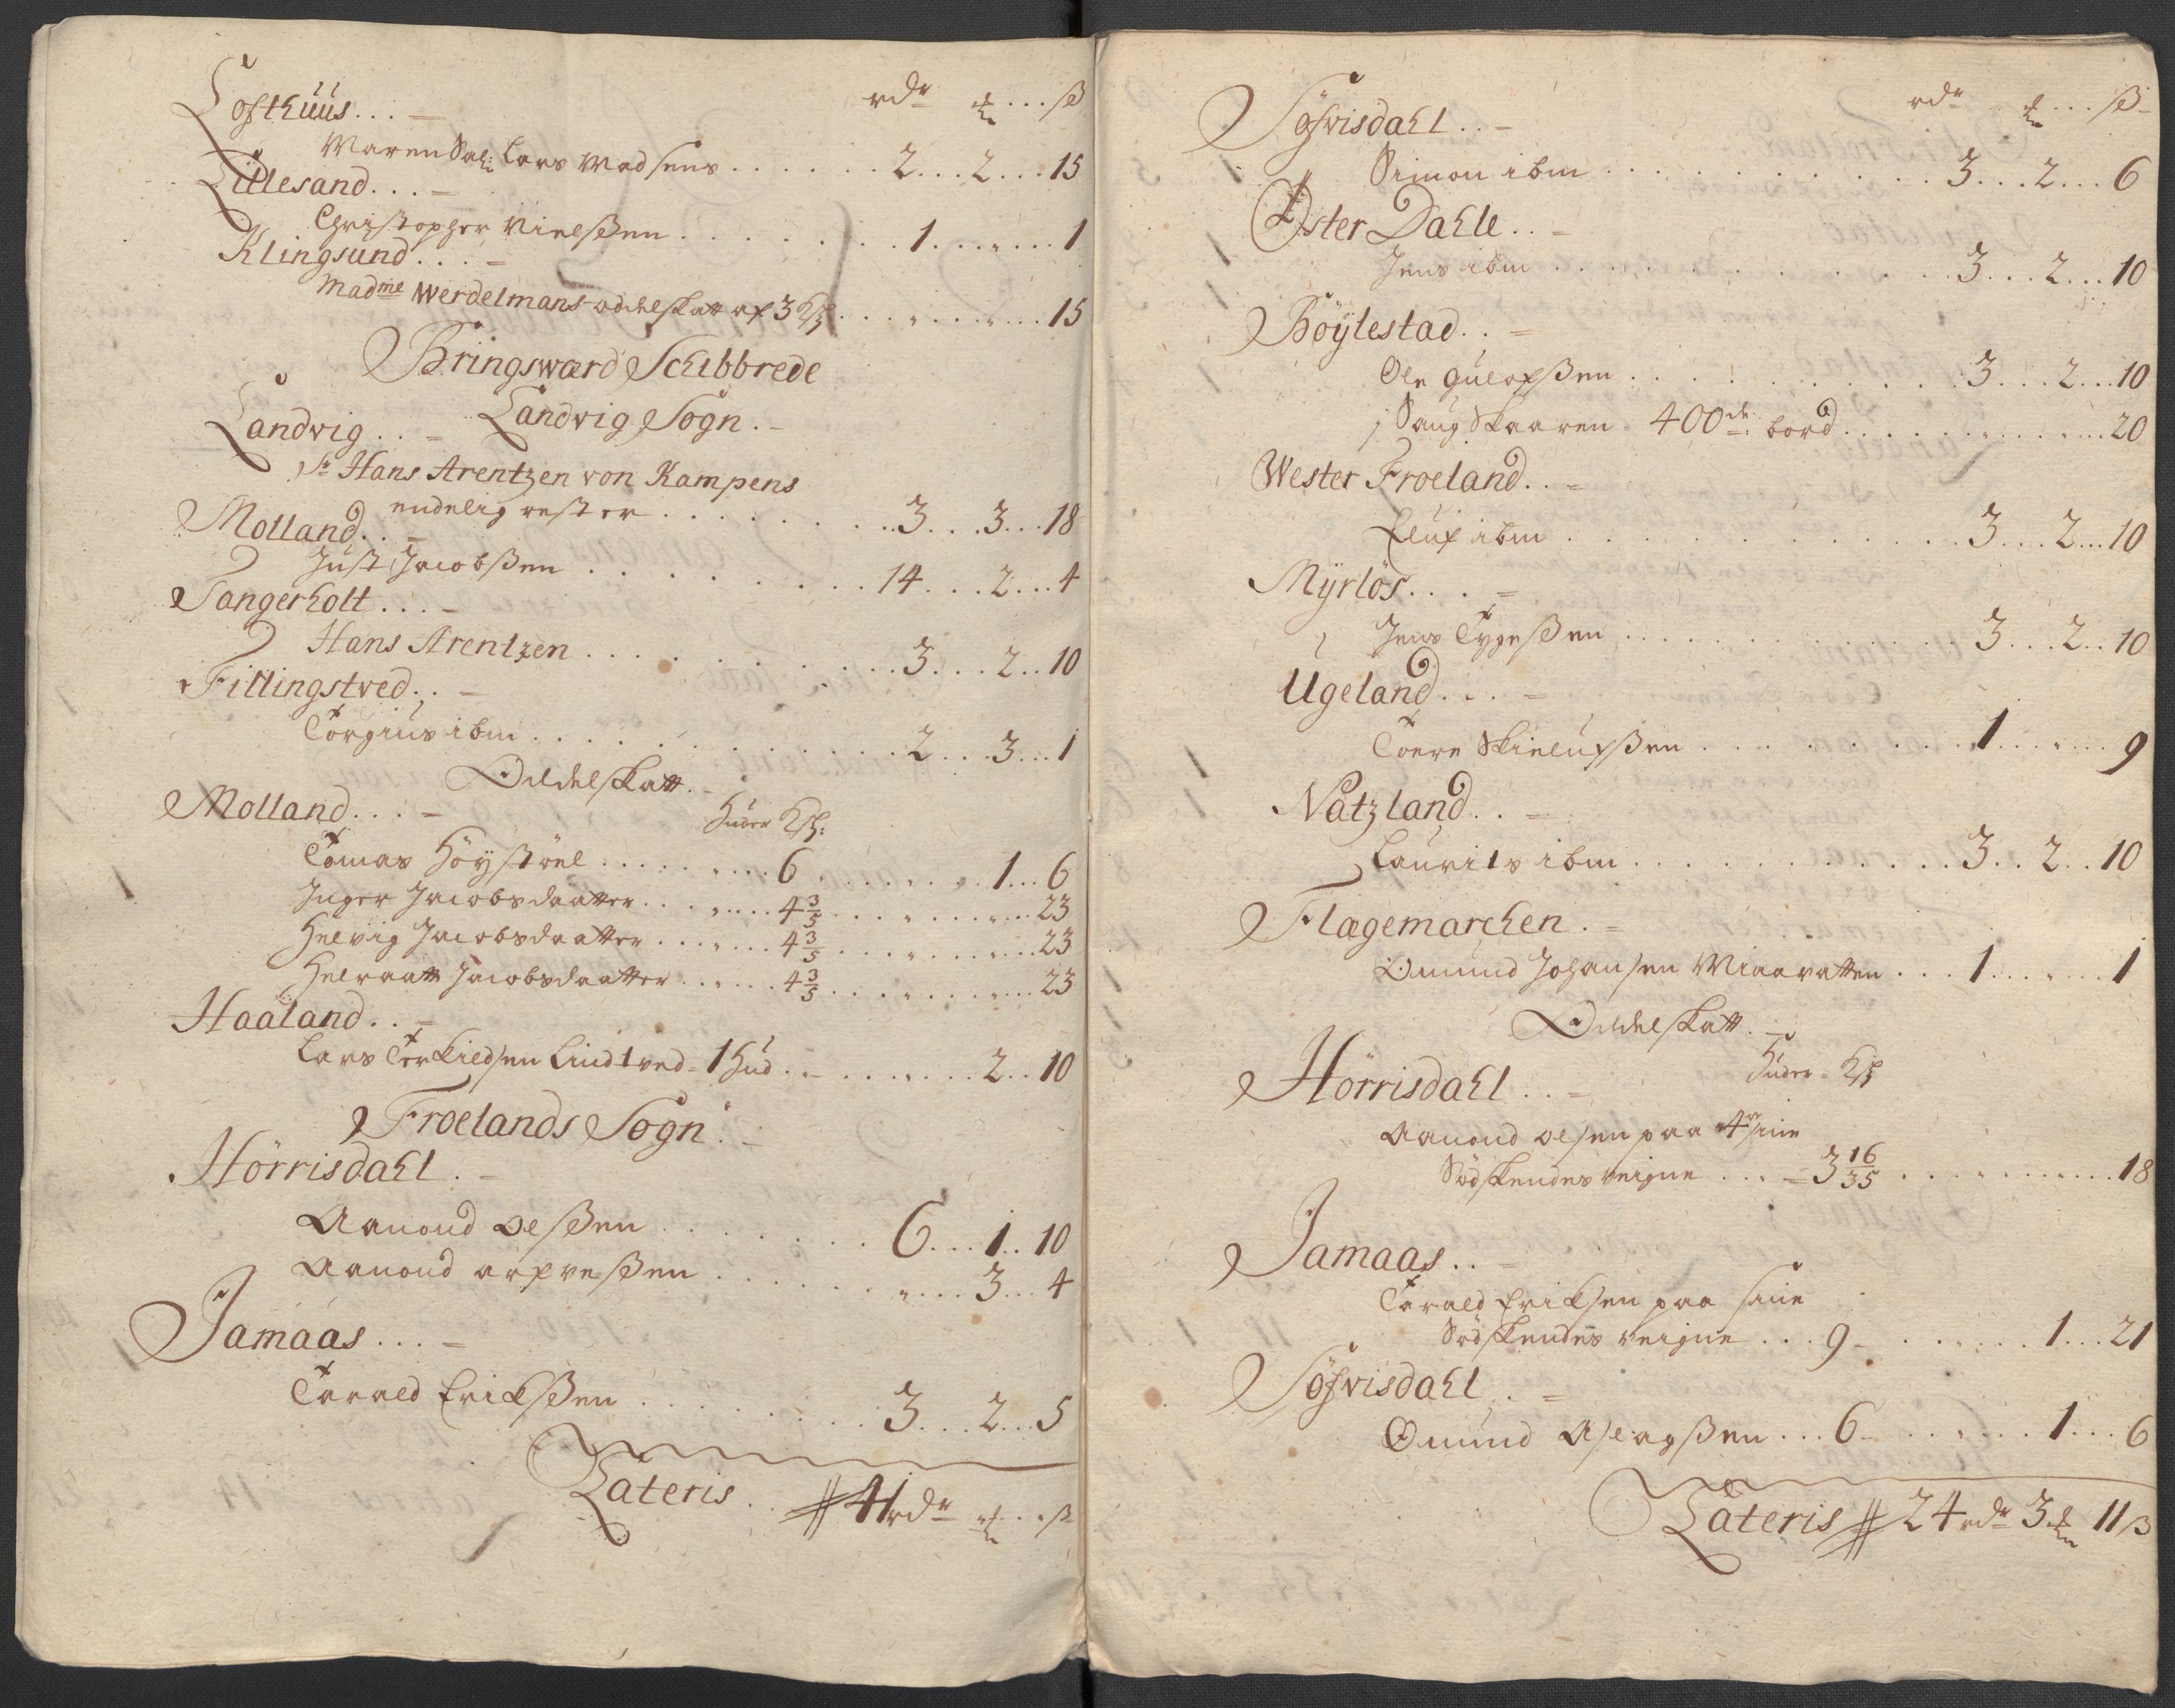 Losthuus . . . rdr ℔ . . . ß
Maren Sal: Lars Madsens . . . . . . 2 . . . 2 . . . 15
Lillesand . . .
Christopher Nielßen . . . . . . . 1 . . . „ . . . 1
Klingsund . . . .
Madme Werdelmans oddelskatt af 3 Kh . . . „ . . . „ . . . 15
Bringsværd Schibbrede
Landvig Sogn . -
Landvig . . -
Sr Hans Arentzen von Kampens
endelig rester . . . . . . . . 3 . . . 3 . . . 18
Molland . .
Just Jacobßen . . . . . . . . 14 . . . 2 . . . 4
Tangerholt . . . -
Hans Arentzen . . . . . . . . 3 . . . 2 . . 10
Fillingstved . . -
Torgius ibm . . . . . . . . . . 2 . . . 3 . . . 1
Oddelskatt . -
Molland . . . - Huder Kh:
Tomas Höystöel . . . . . „ . . . 6 . . . „ . . . 1 . . . 6
Inger Jacobsdaatter . . . „ . . . 4 3/5 . . . „ . . . „ . . . 23
Helvig Jacobsdaatter . . . „ . . . 4 3/5 . . . „ . . . „ . . . 23
Helraatt Jacobsdaatter . . „ . . . 4 3/5 . . . „ . . . „ . . . 23
Haaland . . -
Lars Terkiedsen Lindtved = 1 Hud . . - . . . „ . . . 2 . . 10
Froelands Sogn . -
Hörrisdahl . -
Aanond Oelßen . . . . . . . 6 . . . 1 . . 10
Aanond Arfveßen . . . . . . „ . . . 3 . . . 4
Jamaas . . . -
Tarald Erickßen . . . . . . . 3 . . . 2 . . . 5
Lateris . . # 41 rdr „ ℔ . . . ß
rdr ℔ . . . ß
Söfvisdahl . . -
Simon ibm . . . . . . . . . . 3 . . . 2 . . . 6
Öster Dahle . . -
Jens ibm . . . . . . . . . . . 3 . . . 2 . . . 10
Böylestad . . -
Ole Gulofßen . . . . . . . . . 3 . . . 2 . . . 10
Saug Skaaren = 400de bord . . . . . . „ . . . „ . . . 20
Wester Froeland . . -
Eluf ibm . . . . . . . . . . . 3 . . . 2 . . . 10
Myrlös . . . . -
Jens Tygeßen . . . . . . . . . 3 . . . 2 . . 10
Ugeland . . . -
Toere Skielufßen . . . . . . . 1 . . . „ . . . 9
Natzland . . -
Laurits ibm . . . . . . . . . . 3 . . 2 . . 10
Flagemarchen . -
Omund Johansen Miaavatten . . . 1 . . . „ . . . 1
Oddelskatt . -
Hörrisdahl . . - Huder = Kh
Aanond Oelsen paa 4re sine
Södskendes veigne . . . = 3 16/35 . . . „ . . . „ . . . 18
Jamaas . . -
Tarald Ericksen paa sine
Södskendes veigne . . . 9 - . . . „ . . . 1 . . . 21
Söfvisdahl . . -
Omund Aslagßen . . . 6 - . . . „ . . . 1 . . . 6
Lateris # 24 rdr 3 ℔ 11 ß